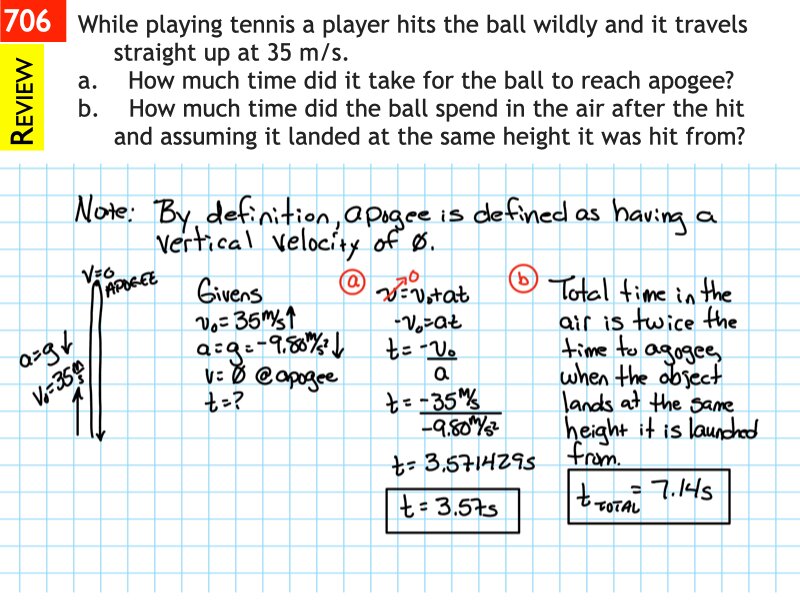 706
REVIEW
While playing tennis a player hits the ball wildly and it travels
straight up at 35 m/s.
a. How much time did it take for the ball to reach apogee?
b. How much time did the ball spend in the air after the hit
and assuming it landed at the same height it was hit from?
Note: By definition, apogee is defined as having a
vertical velocity of Ø.
V=0
APOGEE
a=g↓
V₀=35 m/s
Givens
v₀=35 m/s↑
a=g=-9.80 m/s²↓
v=Ø @apogee
t=?
a
v=v₀+at
0
-v₀=at
t=-v₀
a
t=-35 m/s
-9.80 m/s²
t=3.571429s
t=3.57s
b
Total time in the
air is twice the
time to agogee,
when the object
lands at the same
height it is launched
from.
t TOTAL = 7.14s